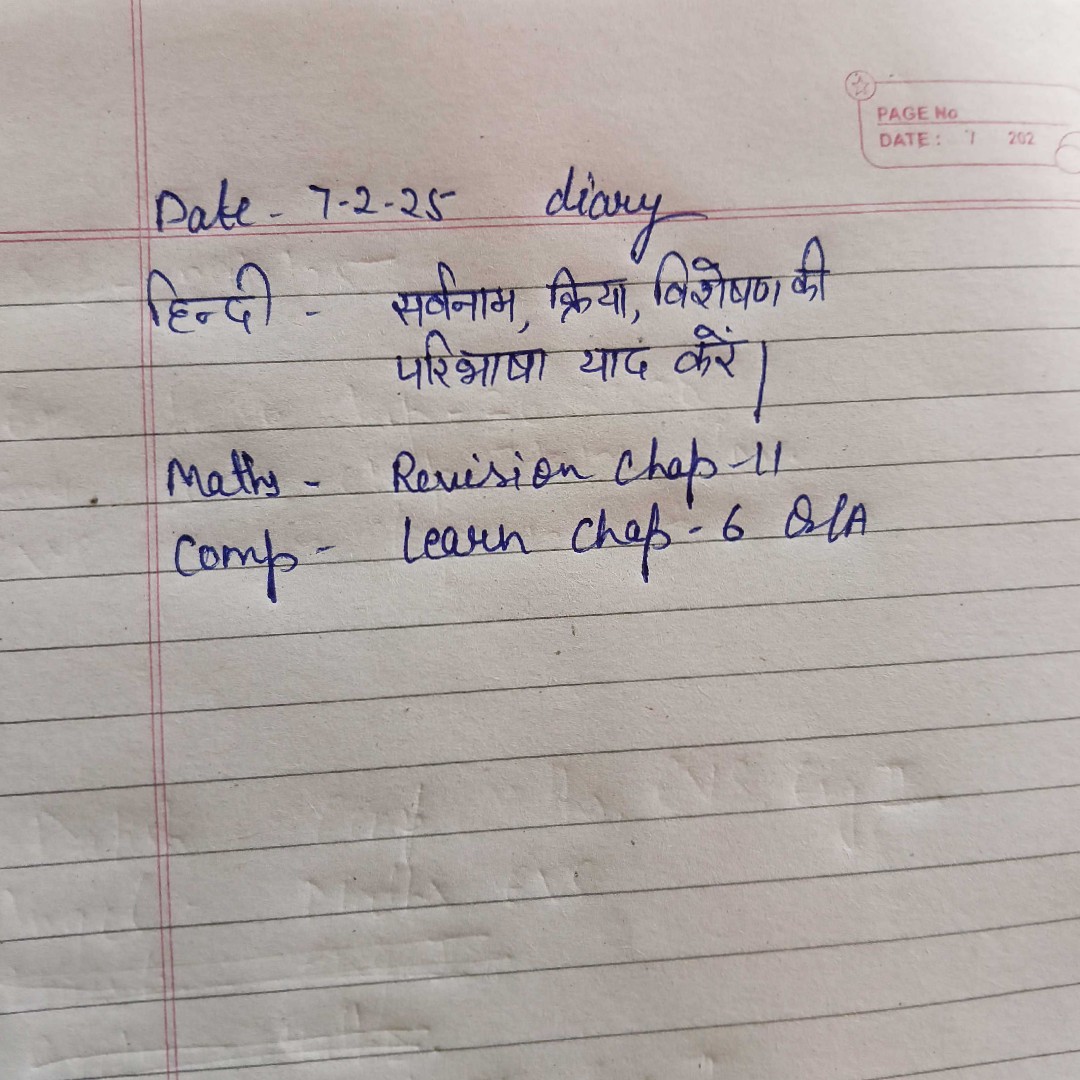 PAGE No
DATE: 7 202
Date - 7-2-25 diary
हिन्दी - सर्वनाम, क्रिया, विशेषण की
परिभाषा याद करें।
Maths - Revision Chap-11
Comp - learn Chap - 6 Q/A